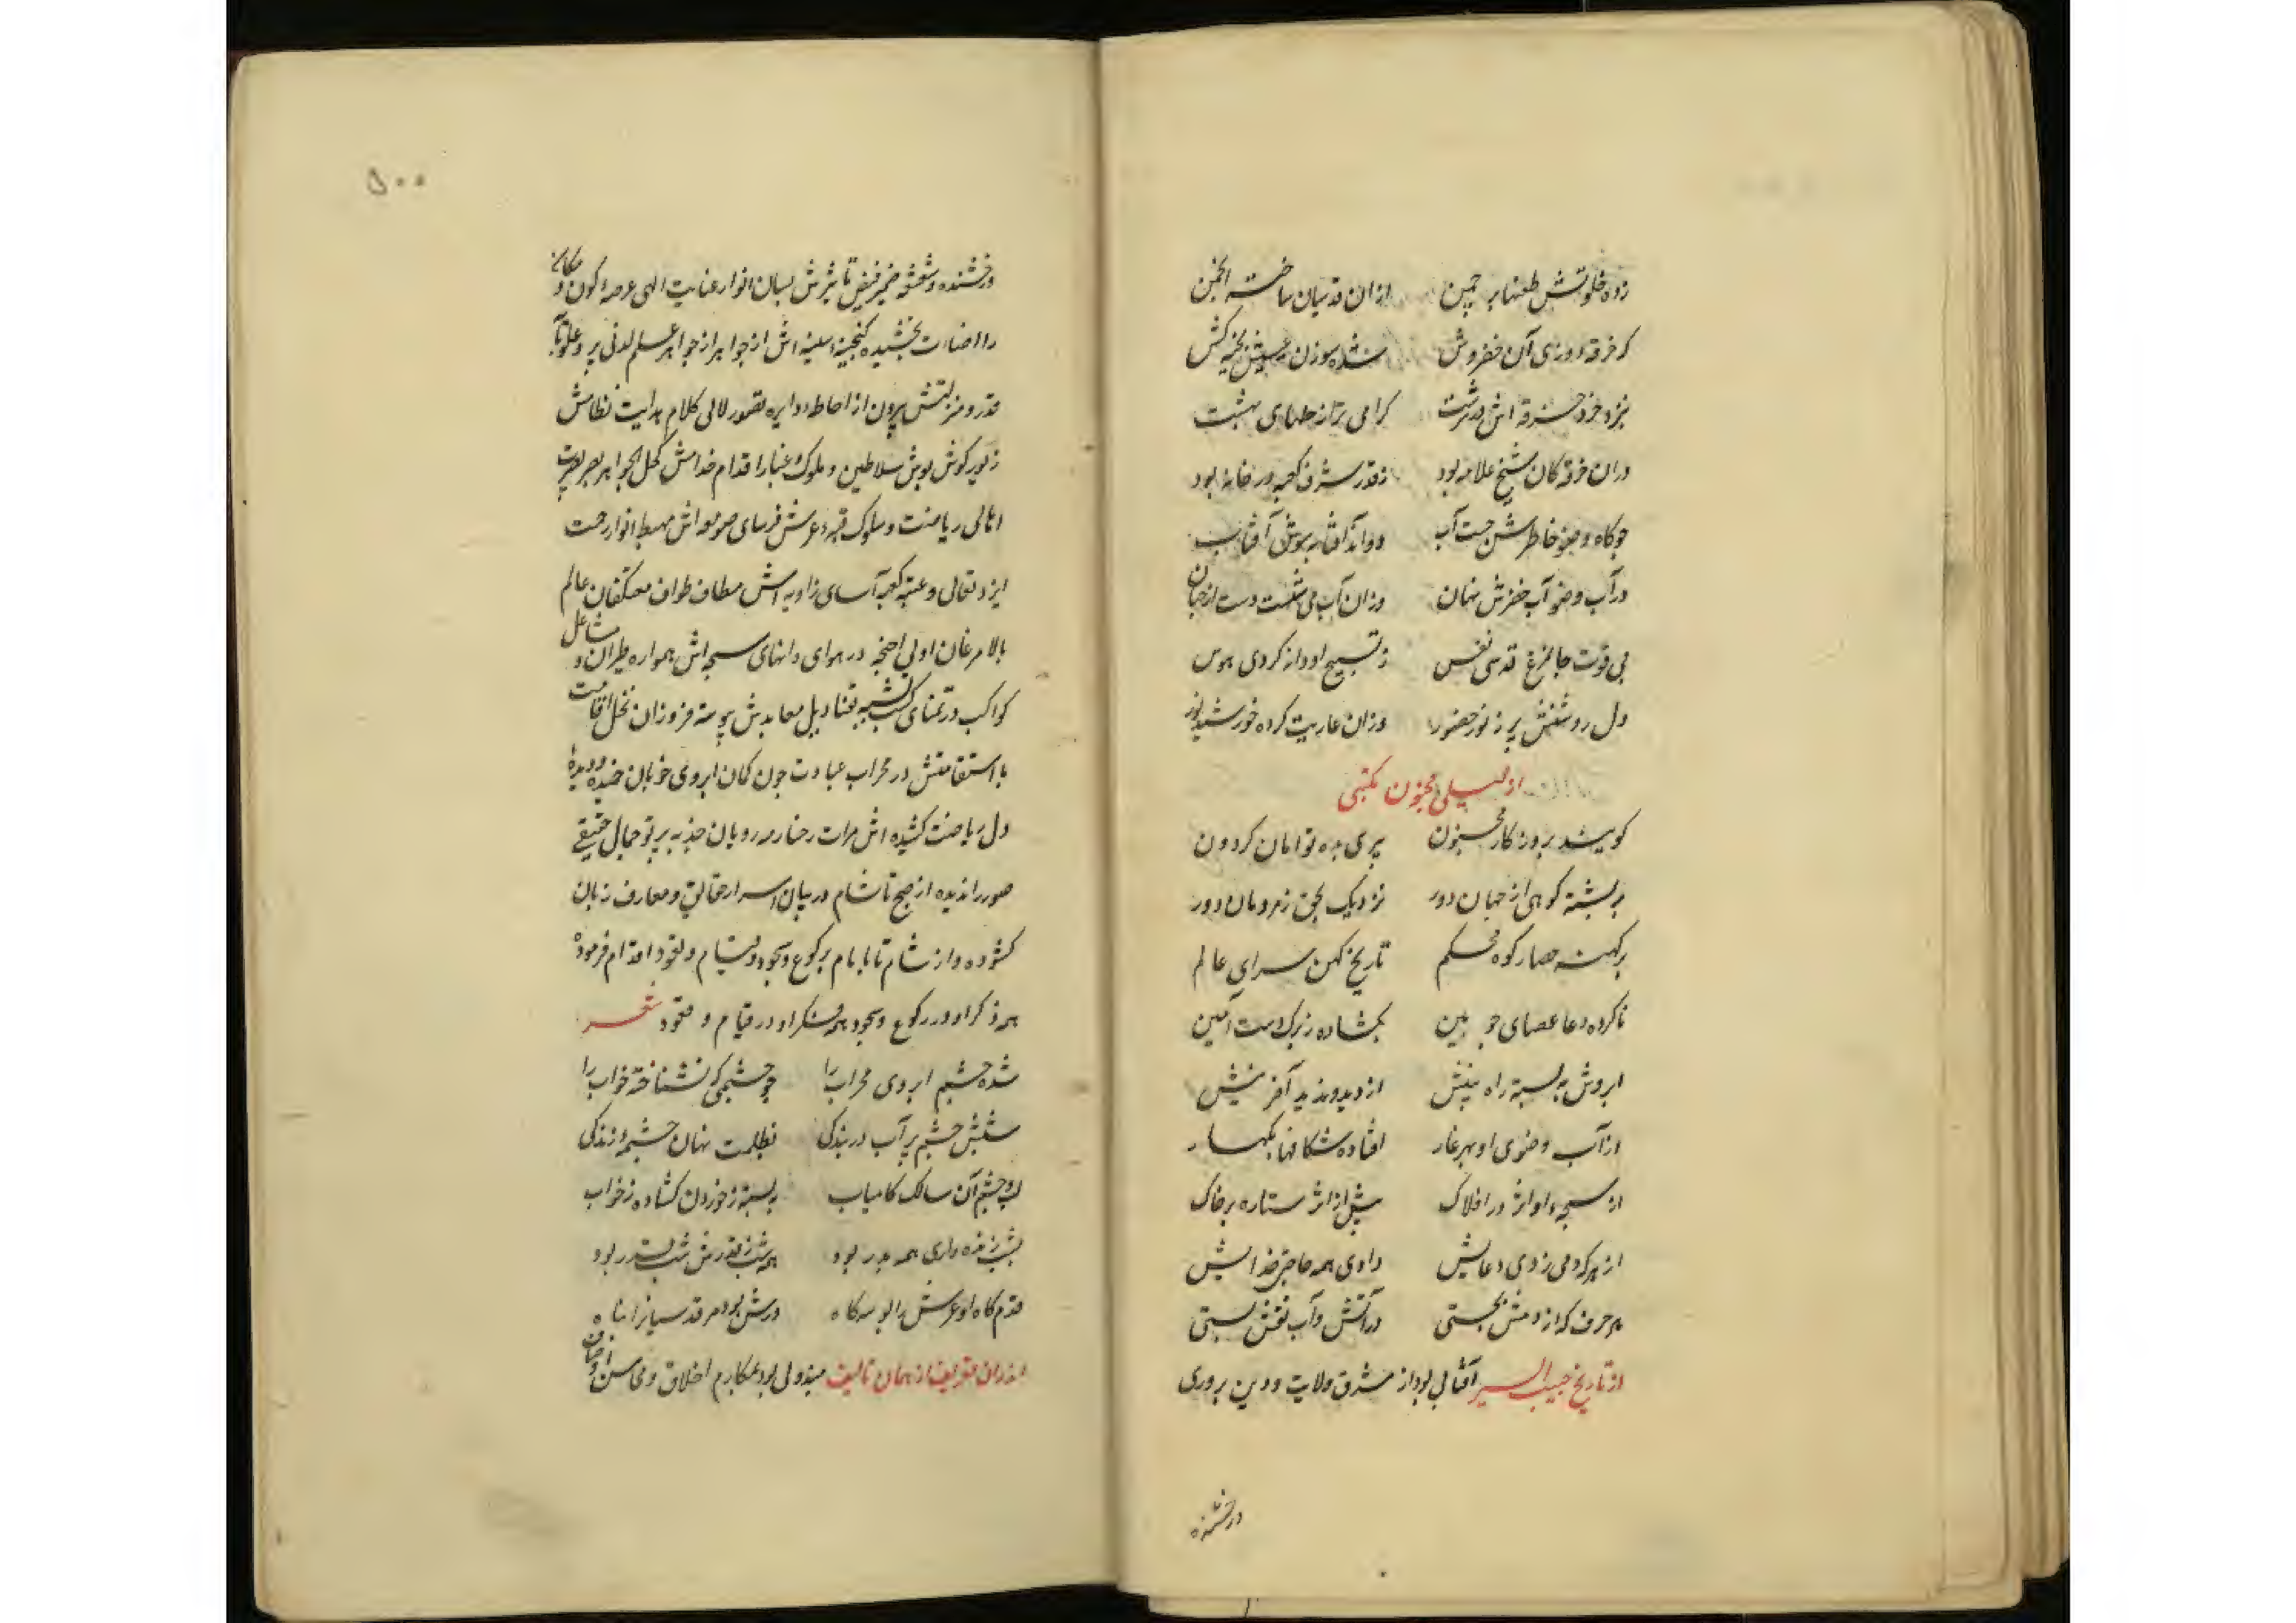 زده خلوتش طعنها بر چمن از ان قدسیان ساخته انجمن
که خرقه دوزی آن خضروش شده سوزن عیسیش بخیه کش
بنزد خرد خرقه اش در سرشت کرامی تر از حلهای بهشت
دران خرقه کان شیخ علامه بود ز قدر شرف کعبه در خانه بود
چو کاه وضو خاطرش جست آب دواند آفتابه بوش آفتاب
در آب وضو آب خضرش نهان وزان آب می شست دست از جهان
پی قوت جا مرغ قدسی نفس ز تسبیح او دانه کردی هوس
دل روشنش پر ز نور حضور وزان عاریت کرده خورشید نور
از لیلی مجنون مکتبی
کویند بروزکار مجنون پیری بده توامان کردون
بر پشته کوهی از جهان دور نزدیک بحق ز مردمان دور
بر کهنه حصار کوه محکم تاریخ کهن سرای عالم
ناکرده دعا عصای چوبین بکشاده ز برک دست آمین
ابروش ببسته راه بینش از دید و ندید آفرینش
از آب وضوی او بهر غار افتاده شکافها بکهسار
از سبحه او اثر در افلاک بیش از اثر ستاره بر خاک
از هر که دمی زدی دعایش دادی همه حاجتی خدایش
هر حرف که از دمش بجستی در آتش و آب نقش بستی
از تاریخ حبیب السیر آفتابی بود از مشرق ولایت و دین پروری
درخشنده
۵۰۰
درخشنده و شعشه ضمیر فیض تاثیرش بسان انوار عنایت الهی عرصه کون و مکان
را اضاءت بخشیده کنجینه سینه اش از جواهر از جواهر علم لدنی پر و علو
قدر و منزلتش بیرون از احاطه دوایره تصور لالی کلام هدایت نظامش
زیور کوش بوش سلاطین و ملوک و غبار اقدام خدامش کحل الجواهر بصر بصیرت
اهالی ریاضت و سلوک قبه عرش فرسای صومعه اش مهبط انوار رحمت
ایزد تعالی و عتبه کعبه آسای زاویه اش مطاف طواف معتکفان عالم
بالا مرغان اولی اجنحه در هوای دانهای سبحه اش همواره طیران و مشاعل
کواکب در تمنای کسب تشبه بقنادیل معابدش پیوسته فروزان نخل اقامت
با استقامتش در محراب عبادت چون کمان ابروی خوبان خمیده و دیده
دل ریاضت کشیده اش مرات رخسار مه رویان جذبه پرتو جمال حقیقی
صور راندیده از صبح تا شام در بیان اسرار حقایق و معارف زبان
کشوده و از شام تا بامبام برکوع و سجود و قیام و قعود اقدام فرموده
همه ذکر او در رکوع و سجود همه فکر او در قیام و قعود شعر
شده چشم ابروی محراب را چو چشمی که نشناخته خواب را
ستش چشم پر آب در بندکی بظلمت نهان چشمه زندکی
لب و چشم آن سالک کامیاب ببسته ز خوردن کشاده ز خواب
بشب زنده داری همه بدر بود همه شب ز قدرش شب قدر بود
قدم کاه او عرش را بوسه کاه درش بود مر قدسیانرا پناه
اندران تعریف از همان تالیف مبذول بود بمکارم اخلاق و محاسن اوصاف